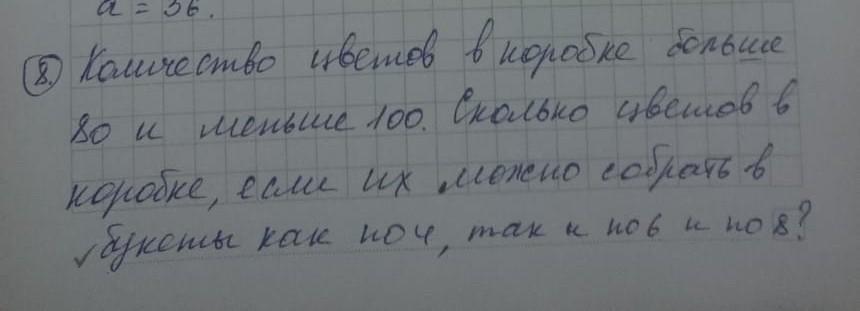 a = 36.
8. Количество цветов в коробке больше
80 и меньше 100. Сколько цветов в
коробке, если их можно собрать в
букеты как по 4, так и по 6 и по 8?